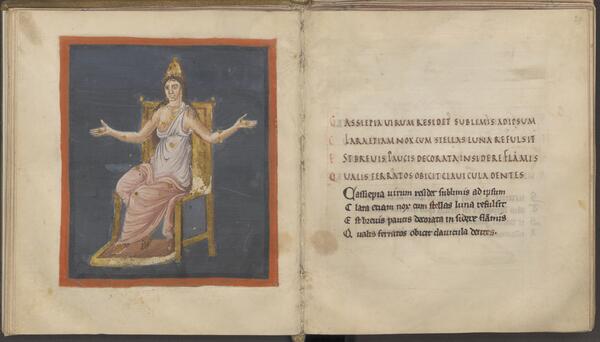 CASSIEPIA VIRUM RESIDET SUBLIMIS ADIPSUM
CLARA ETIAM NOX CUM STELLAS LUNA REFULSIT
EST BREVIS PAUCIS DECORATA INSIDERE FLAMIS
QUALIS FERRATOS OBICIT CLAVICULA DENTES
Cassiepia virum residet sublimis ad ipsum
Clara etiam nox cum stellas luna refulsit
Est brevis paucis decorata in sidere flamis
Qualis ferratos obicit clavicula dentes.